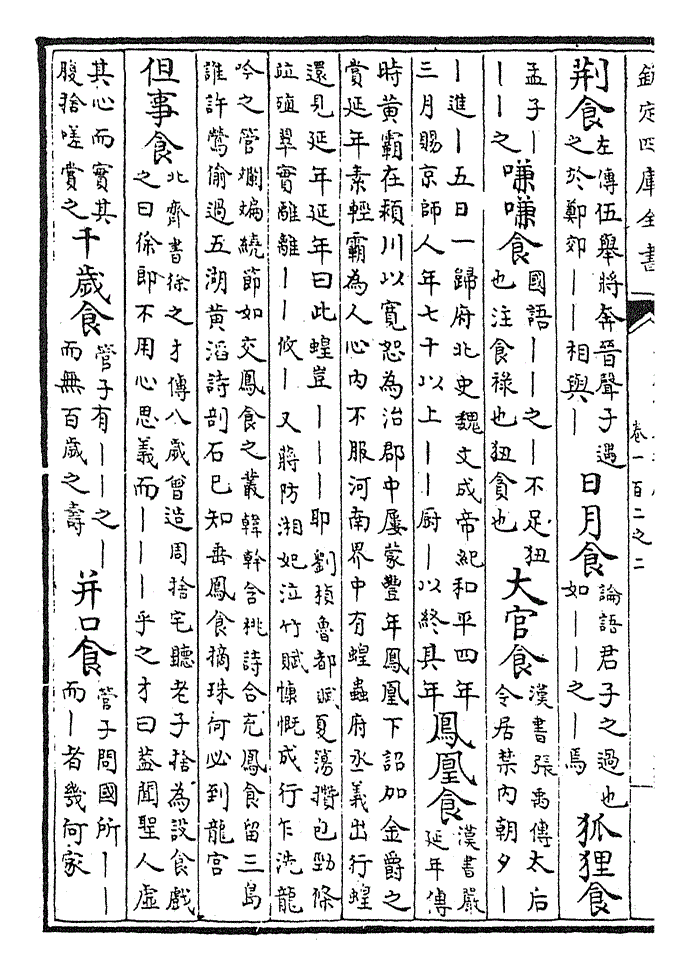 欽定四庫全書 卷一百二之二
荆食 左傳伍舉將奔晉聲子遇之於鄭郊丨丨相與丨 日月食 論語君子之過也如丨丨之丨焉 狐狸食
孟子丨丨丨之 嗛嗛食 國語丨丨之丨不足狃也注食祿也狃貪也 大官食 漢書張禹傳太后令居禁内朝夕丨
丨進丨五日一歸府北史魏文成帝紀和平四年三月賜京師人年七十以上丨丨厨丨以終其年 鳳凰食 漢書嚴延年傳
時黄霸在潁川以寛恕為治郡中屢蒙豐年鳳凰下詔加金爵之賞延年素輕霸為人心内不服河南界中有蝗蟲府丞義出行蝗
還見延年延年曰此蝗豈丨丨丨耶劉楨魯都賦夏簜攢包勁條竝殖翠實離離丨丨攸丨又蔣防湘妃泣竹賦慷慨成行乍洗龍
吟之管斕斒繞節如交鳳食之叢韓幹含桃詩合充鳳食留三島誰許鶯偷過五湖黄滔詩剖石已知垂鳳食摘珠何必到龍宫
但事食 北齊書徐之才傳八歲曾造周捨宅聽老子捨為設食戲之曰徐郎不用心思義而丨丨丨乎之才曰葢聞聖人虚
其心而實其腹捨嗟賞之 千歲食 管子有丨丨之丨而無百歲之壽 并口食 管子問國所丨丨而丨者幾何家